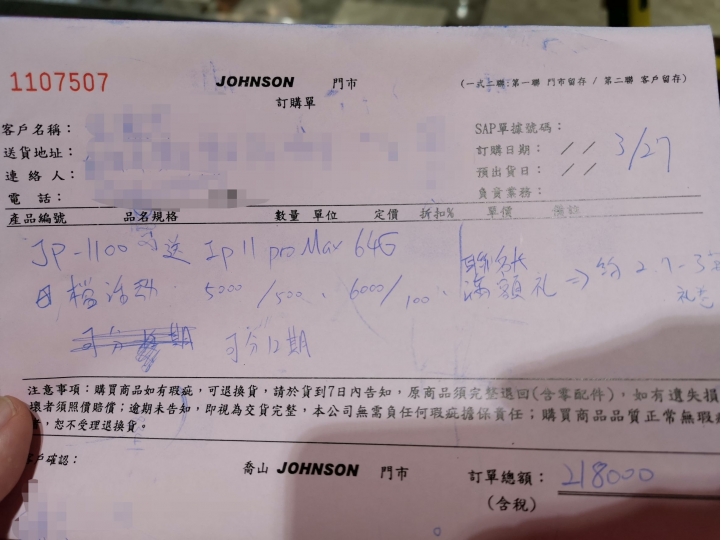 1107507
JOHNSON 門市
(一式二聯:第一聯 門市留存 / 第二聯 客戶留存)
訂購單
客戶名稱:
SAP單據號碼:
送貨地址:
訂購日期: / / 3/27
連絡人:
預出貨日: / /
電 話:
負責業務:
產品編號 品名規格 數量 單位 定價 折扣% 單價 備註
JP-1100 送 Ip 11 pro Max 64G
檔活動 5000/500、6000/100、 滿額礼 ⇒ 約 2.7-3
可分12期
注意事項:購買商品如有瑕疵,可退換貨,請於貨到7日內告知,原商品須完整退回(含零配件),如有遺失損
壞者須照價賠償;逾期未告知,即視為交貨完整,本公司無需負任何瑕疵擔保責任;購買商品品質正常無瑕
者,恕不受理退換貨。
客戶確認:
喬山 JOHNSON 門市
訂單總額: 218000
(含稅)